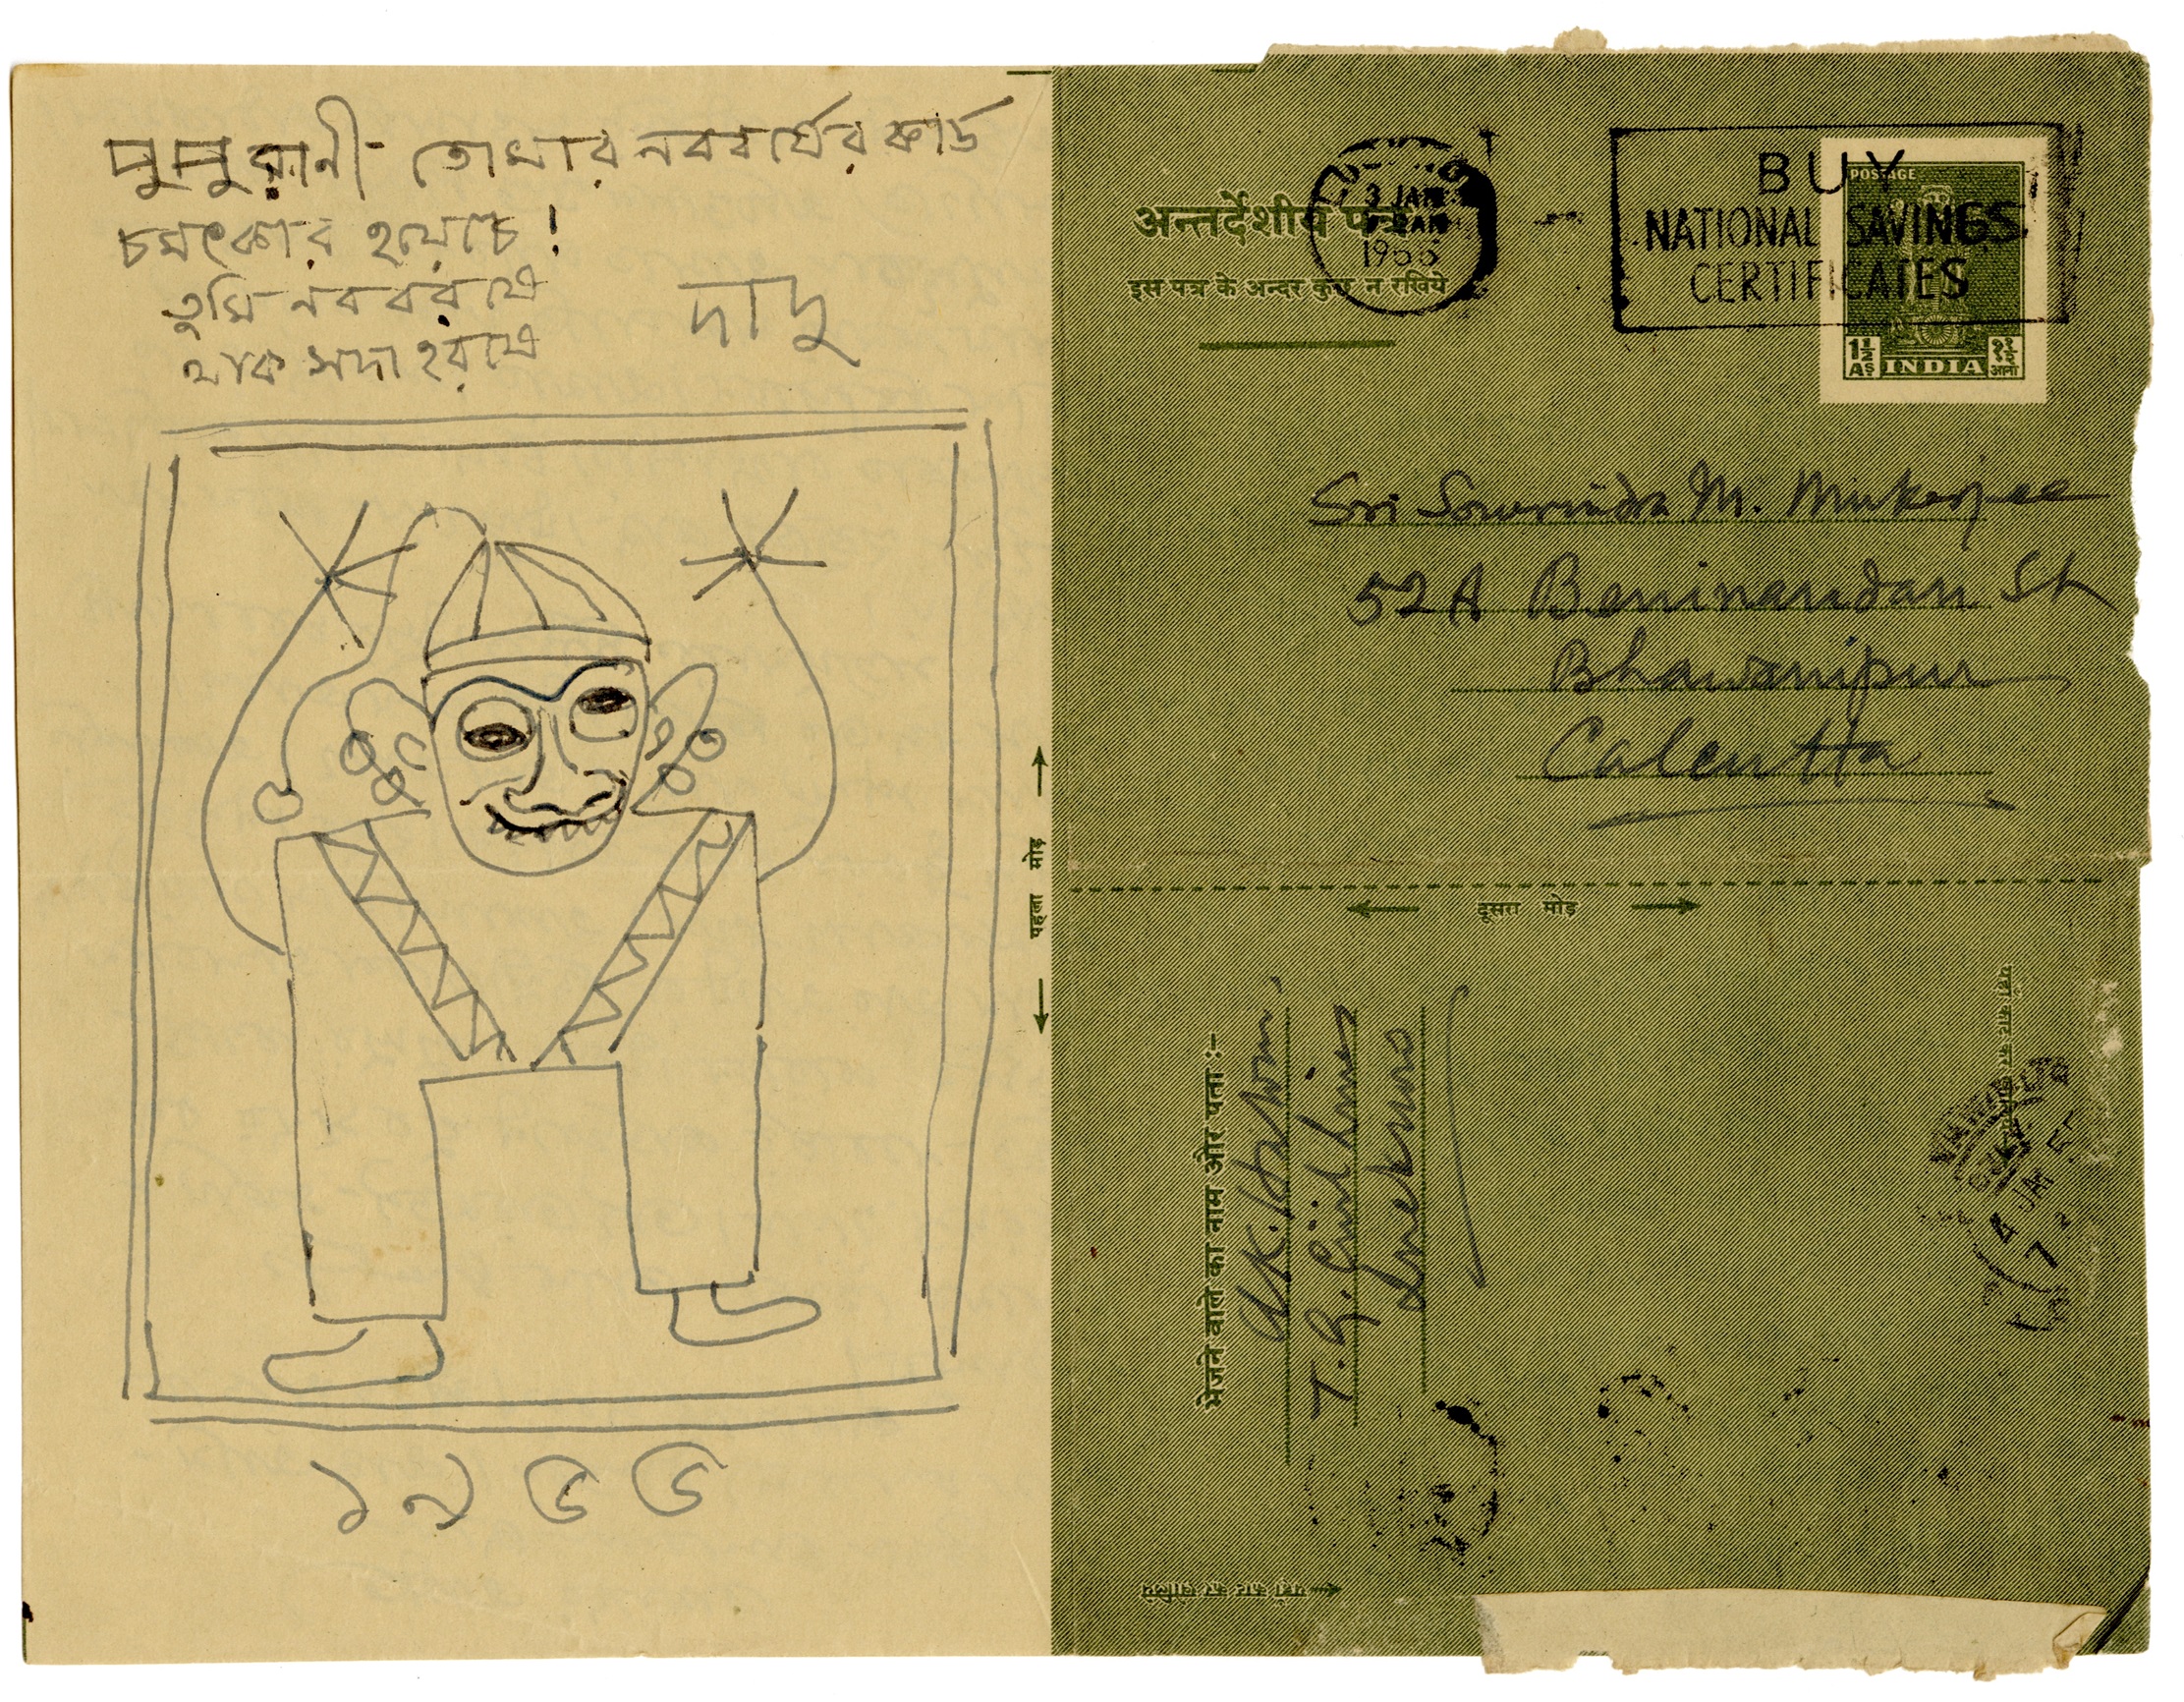 পুপুরানী তোমার নববর্ষের কার্ড
চমৎকার হয়েছে!
তুমি নব বরষে
থাক সদা হরষে
দাদু
১৯৫৫
अन्तर्देशीय पत्र
इस पत्र के अन्दर कुछ न रखिये
3 JAN
1955
BUY
NATIONAL SAVINGS
CERTIFICATES
POSTAGE
1½ As INDIA १½ आना
Sri Sourindra M. Mukerjee
52A Beninandan St
Bhawanipur
Calcutta
← पहला मोड़ →
← दूसरा मोड़ →
भेजने वाले का नाम और पता :-
A.K. Haldar,
Lucknow
4 JAN 55